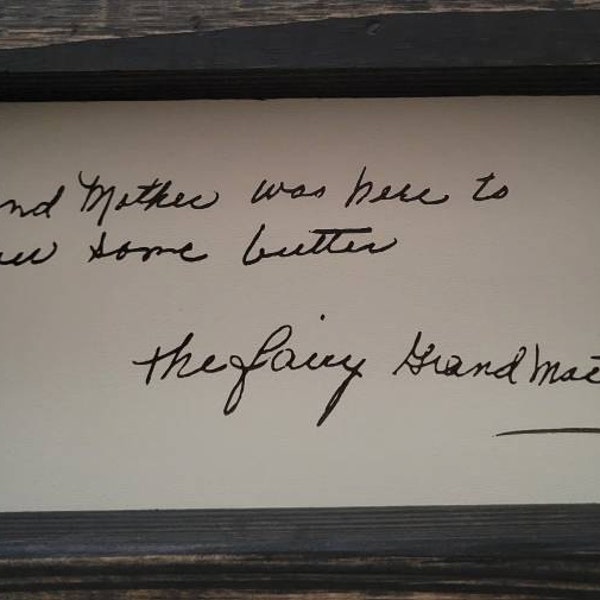 nd Mother was here to
some butter
the fairy Grand Mot